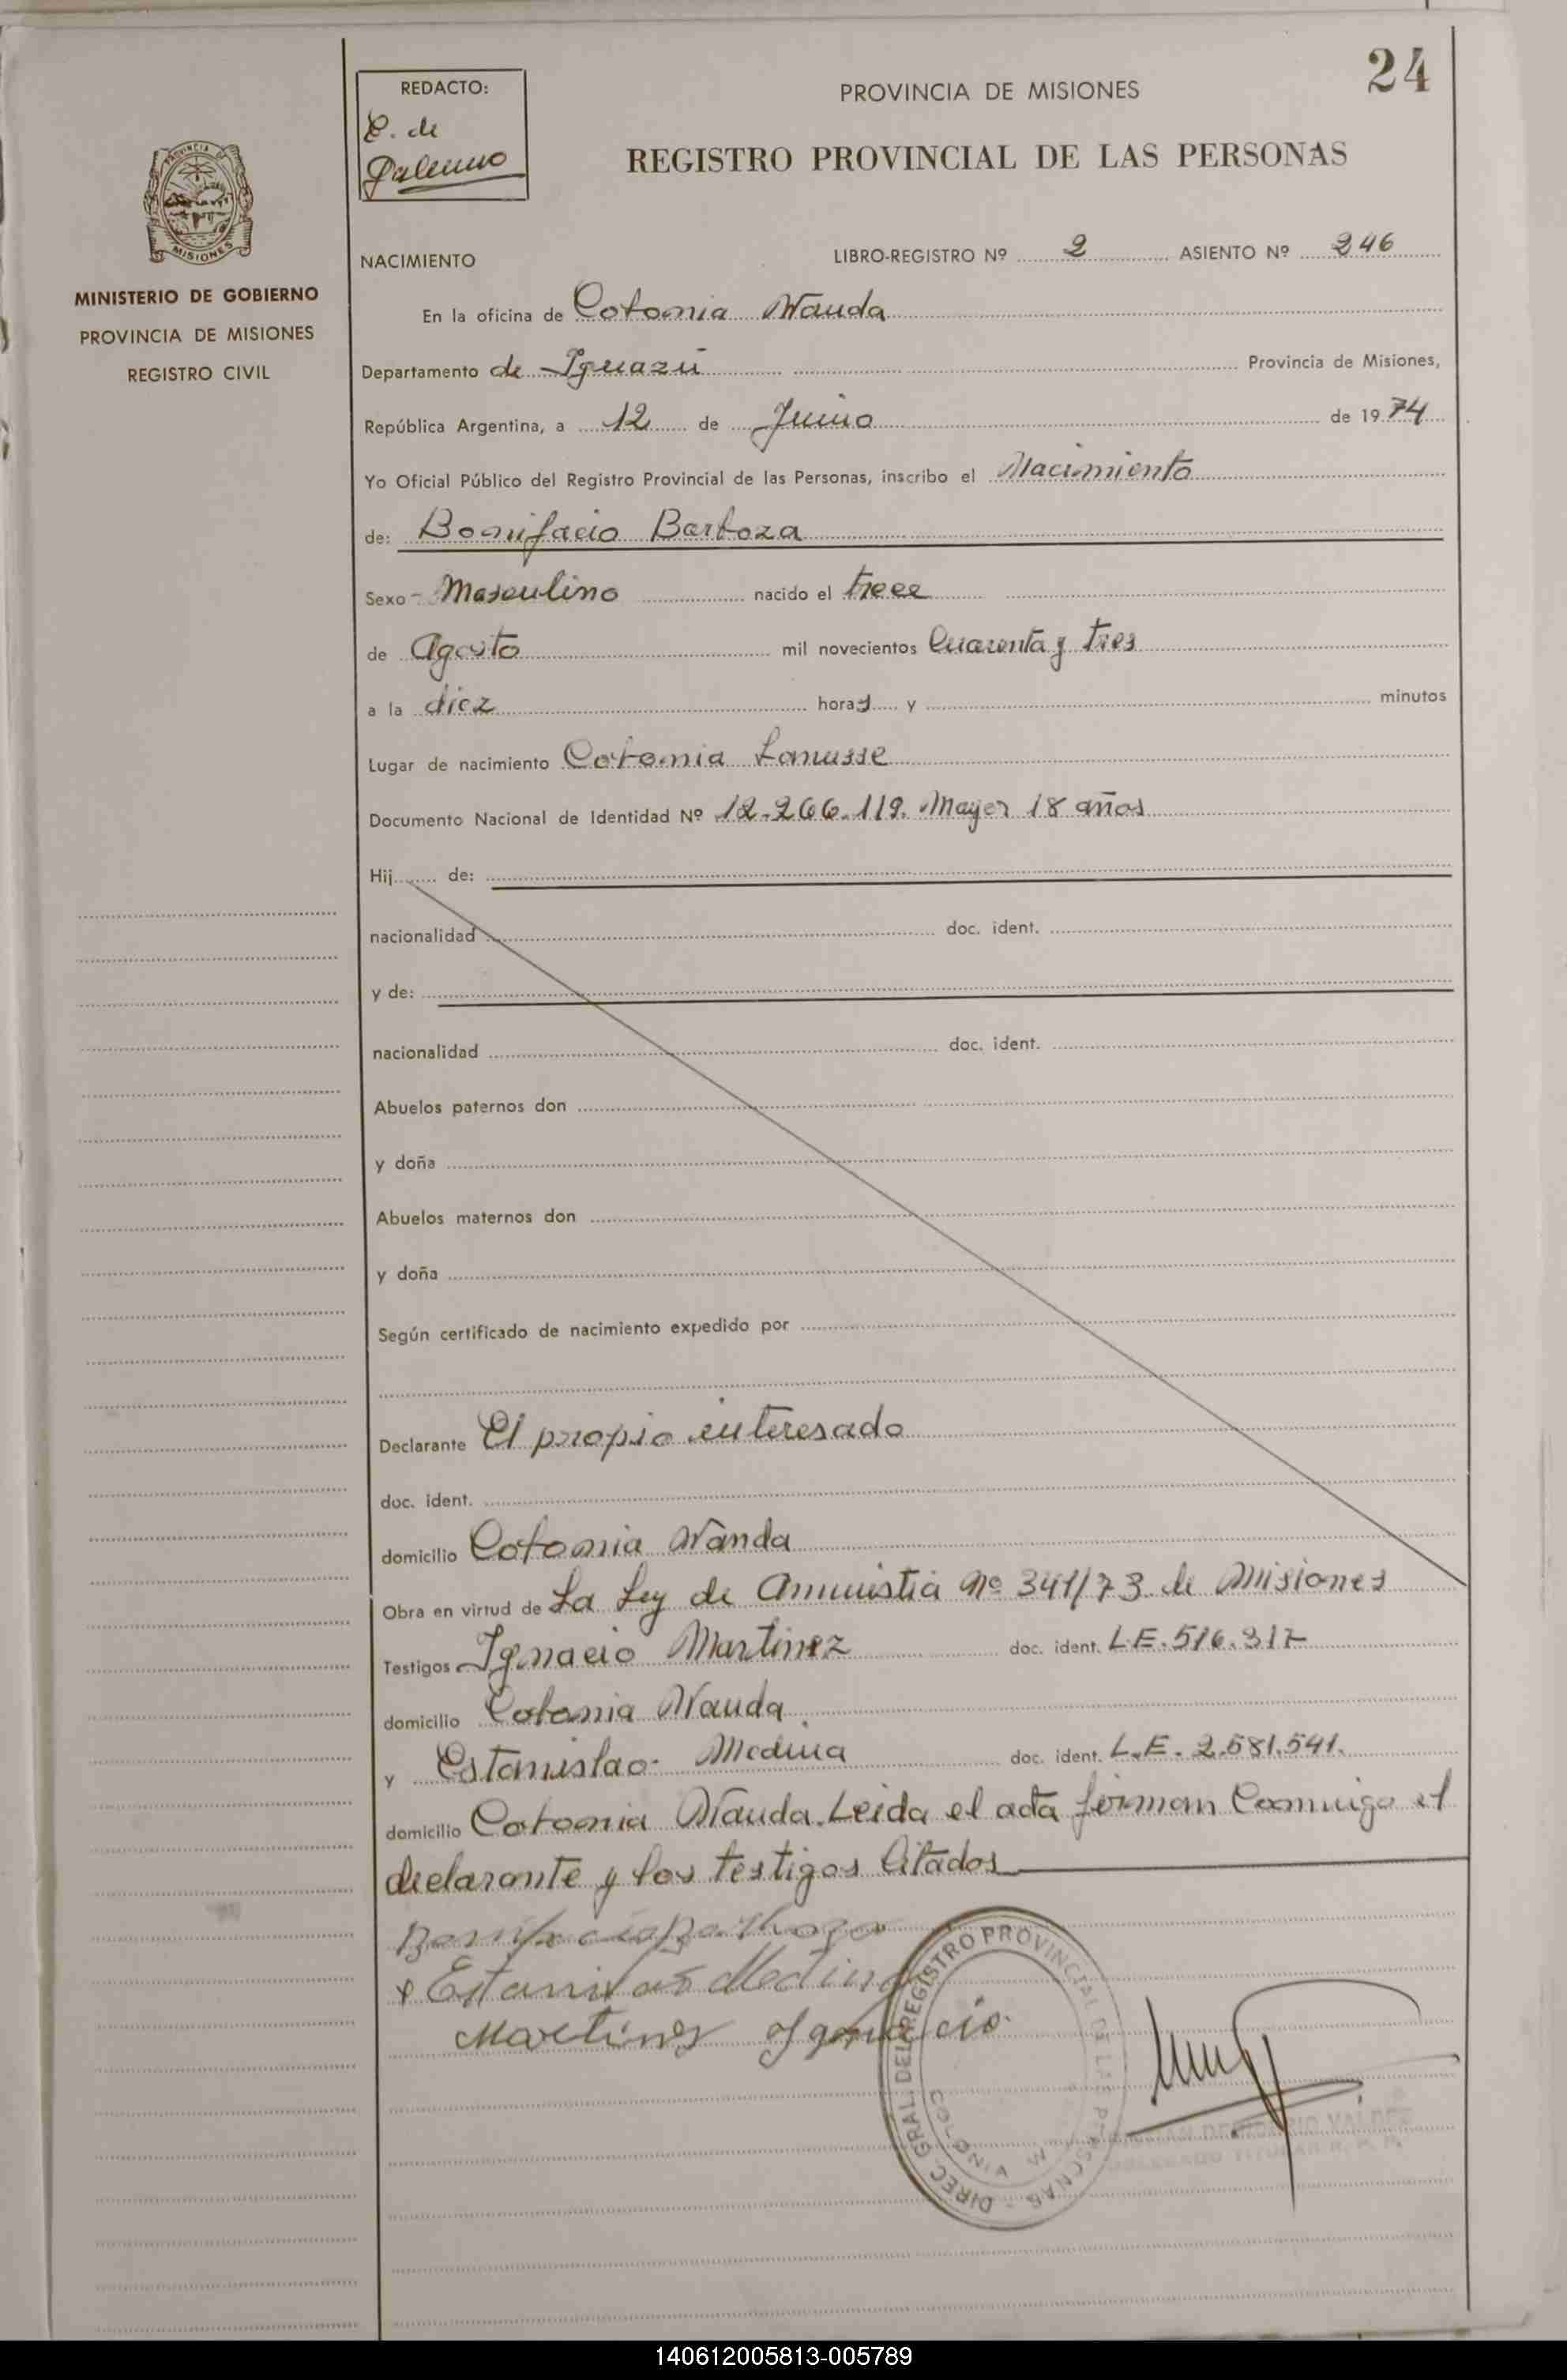 24
REDACTO:
E. de
Palermo
PROVINCIA DE MISIONES
REGISTRO PROVINCIAL DE LAS PERSONAS
PROVINCIA DE
MISIONES
MINISTERIO DE GOBIERNO
PROVINCIA DE MISIONES
REGISTRO CIVIL
NACIMIENTO LIBRO-REGISTRO Nº 2 ASIENTO Nº 246
En la oficina de Colonia Wanda
Departamento de Iguazú Provincia de Misiones,
República Argentina, a 12 de Junio de 1974
Yo Oficial Público del Registro Provincial de las Personas, inscribo el Nacimiento
de: Bonifacio Barboza
Sexo - Masculino nacido el trece
de Agosto mil novecientos Cuarenta y tres
a la diez horas y minutos
Lugar de nacimiento Colonia Lanusse
Documento Nacional de Identidad Nº 12.266.119. Mayor 18 años
Hij de:
nacionalidad doc. ident.
y de:
nacionalidad doc. ident.
Abuelos paternos don
y doña
Abuelos maternos don
y doña
Según certificado de nacimiento expedido por
Declarante El propio interesado
doc. ident.
domicilio Colonia Wanda
Obra en virtud de La Ley de Amnistia nº 341/73 de Misiones
Testigos Ignacio Martinez doc. ident. L.E. 516.317
domicilio Colonia Wanda
y Estanislao Medina doc. ident. L.E. 2.581.541.
domicilio Colonia Wanda. Leida el acta firman Conmigo el
declarante y los testigos Citados
Bonifacio Barboza
Estanislao Medina
Martinez Ignacio
DIREC. GRAL. DEL REGISTRO PROVINCIAL DE LAS PERSONAS
COLONIA W
VALDEZ
DELEGADO TITULAR R. P. P.
140612005813-005789